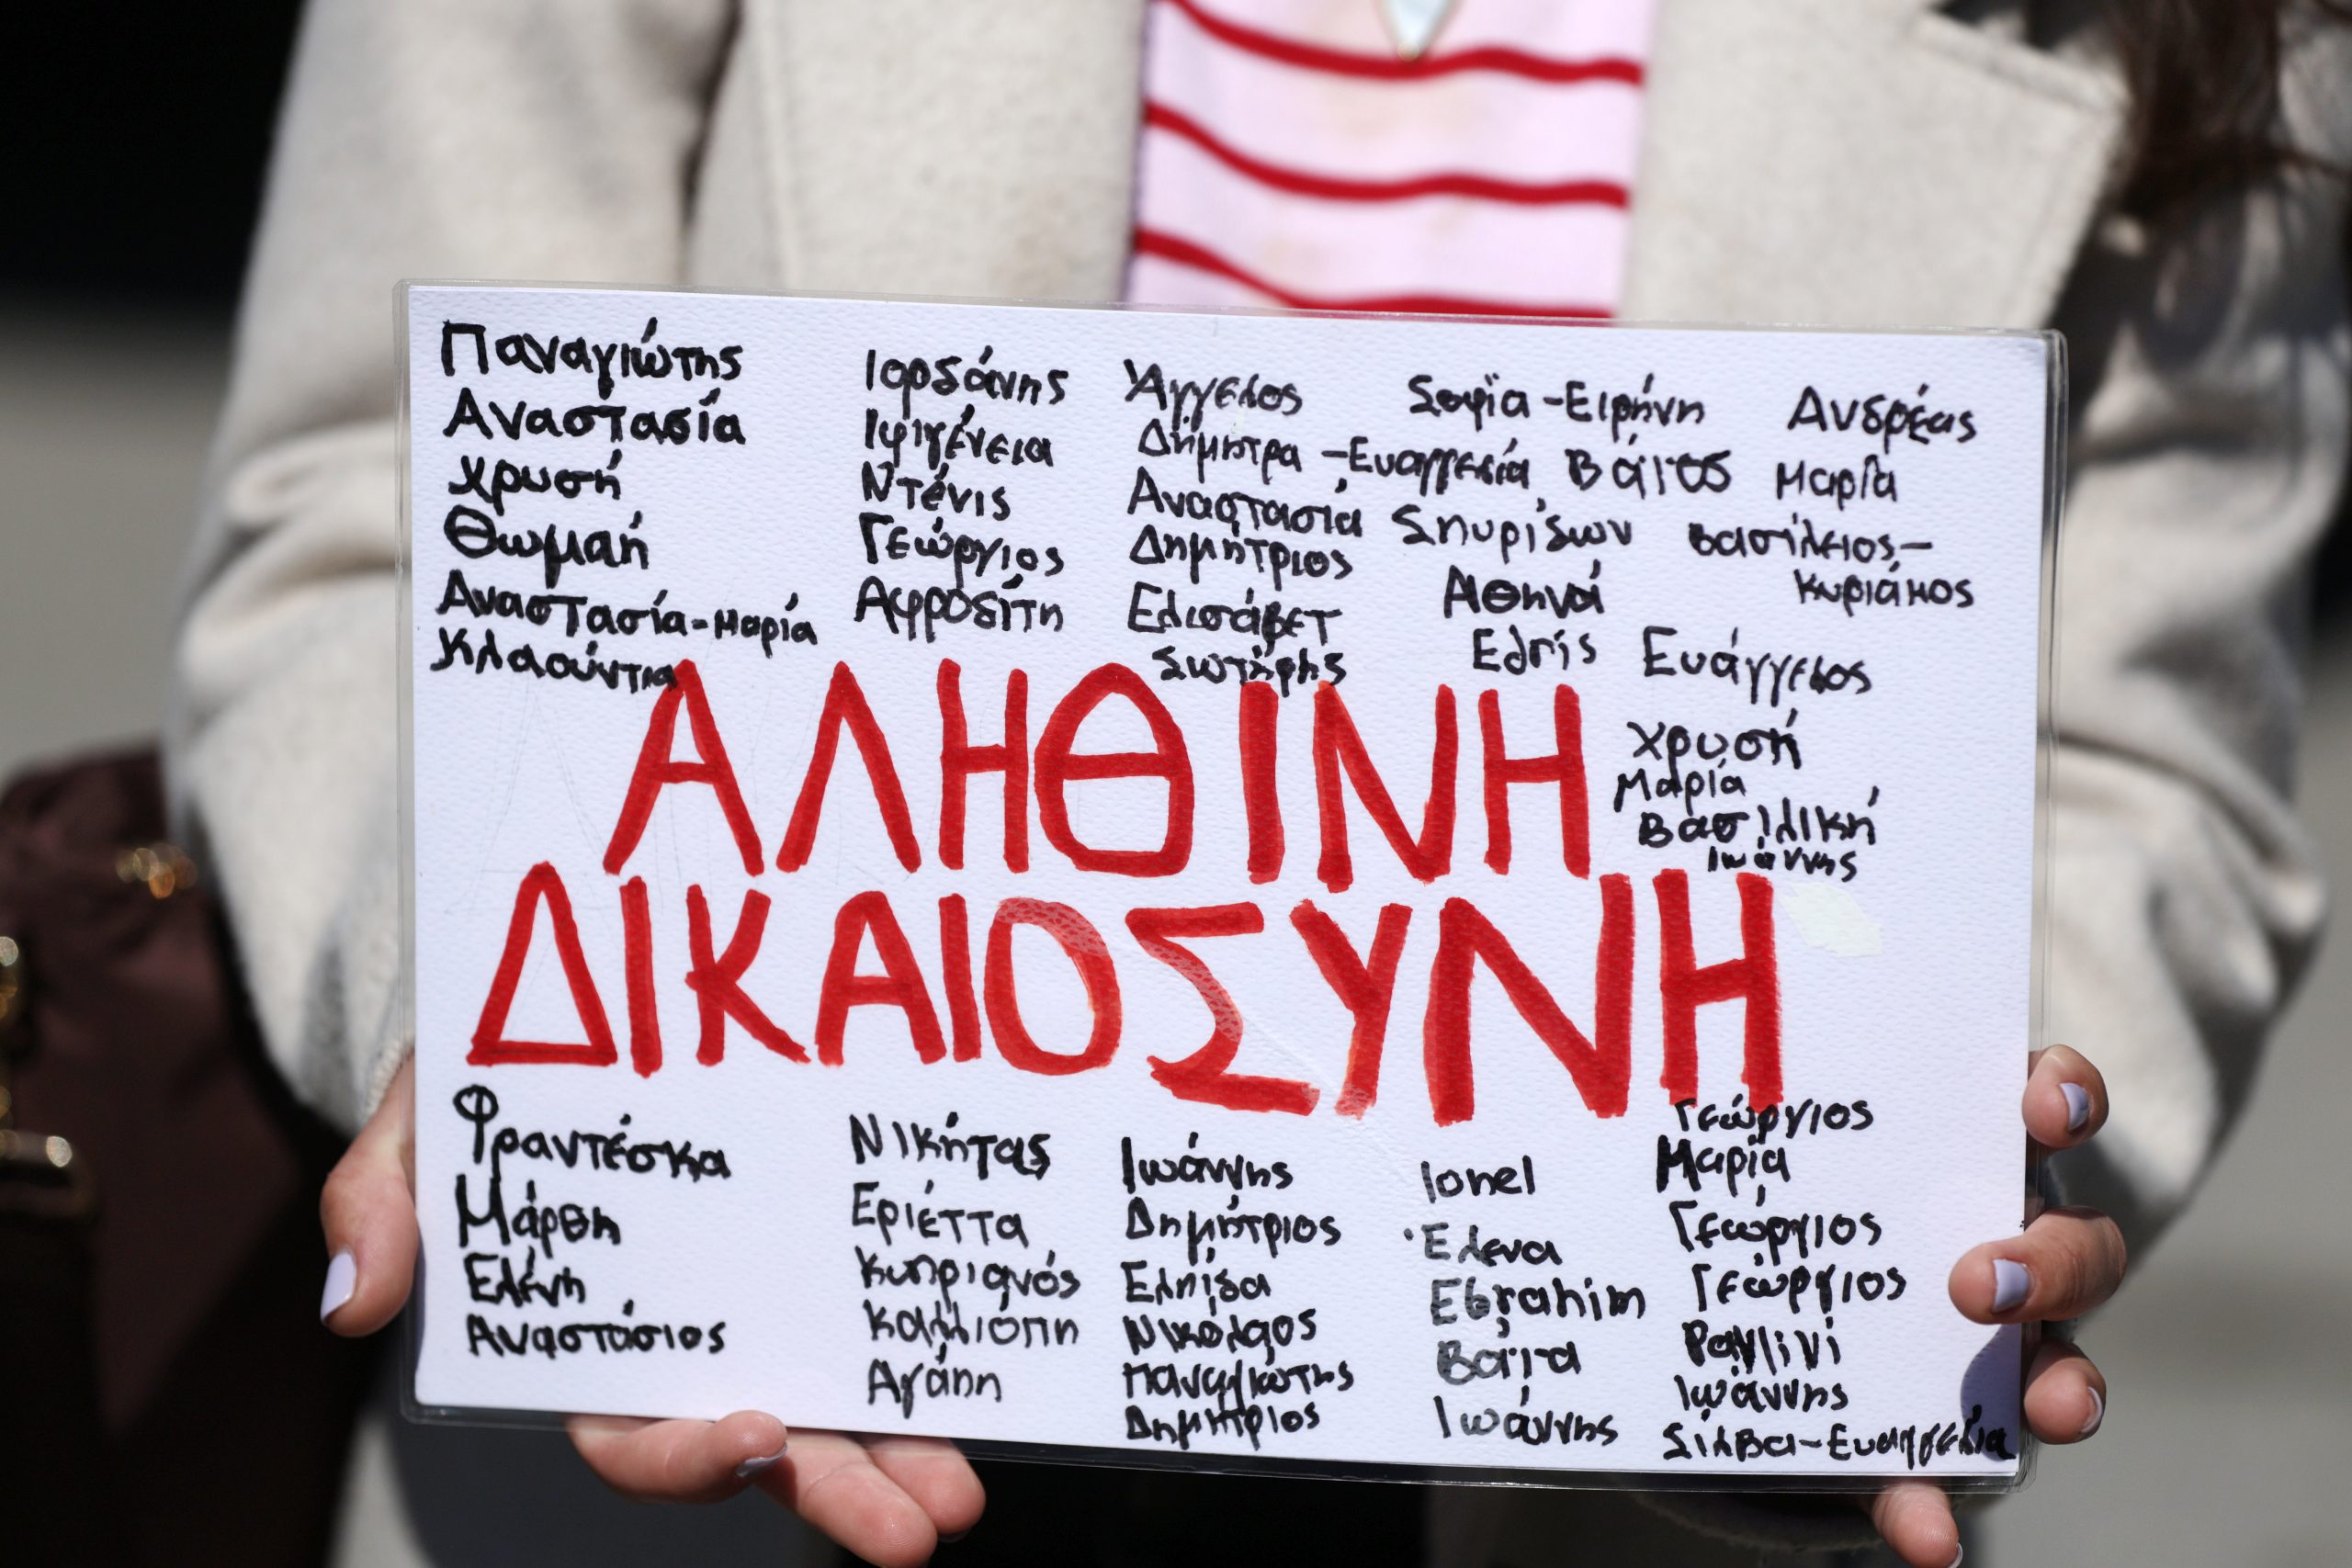 Παναγιώτης
Αναστασία
Χρυσή
Θωμαή
Αναστασία-Μαρία
Κλαούντια
Ιορδάνης
Ιφιγένεια
Ντένις
Γεώργιος
Αφροδίτη
Άγγελος
Δήμητρα-Ευαγγελία
Αναστασία
Δημήτριος
Ελισάβετ
Σωτήρης
Σοφία-Ειρήνη
Βάιος
Σπυρίδων
Αθηνά
Ελπίς
Ανδρέας
Μαρία
Βασίλειος-
Κυριάκος
Ευάγγελος
Χρυσή
Μαρία
Βασιλική
Ιωάννης
ΑΛΗΘΙΝΗ
ΔΙΚΑΙΟΣΥΝΗ
Φραντέσκα
Μάρθη
Ελένη
Αναστάσιος
Νικήτας
Εριέττα
Κυπριανός
Καλλιόπη
Αγάπη
Ιωάννης
Δημήτριος
Ελπίδα
Νικόλαος
Παναγιώτης
Δημήτριος
Ionel
Έλενα
Ebrahim
Βάϊα
Ιωάννης
Γεώργιος
Μαρία
Γεώργιος
Γεώργιος
Ιωάννης
Σίλβα-Ευαγγελία